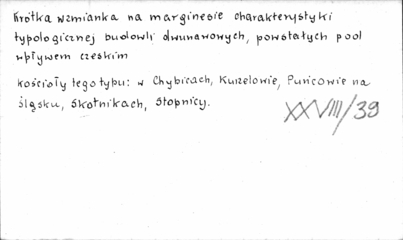 Krótka wzmianka na marginesie charakterystyki
typologicznej budowli dwunawowych, powstałych pod
wpływem czeskim
kościoły tego typu: w Chybicach, Kurzelowie, Puńcowie na
śląsku, Skotnikach, Stopnicy.
XXVIII/39